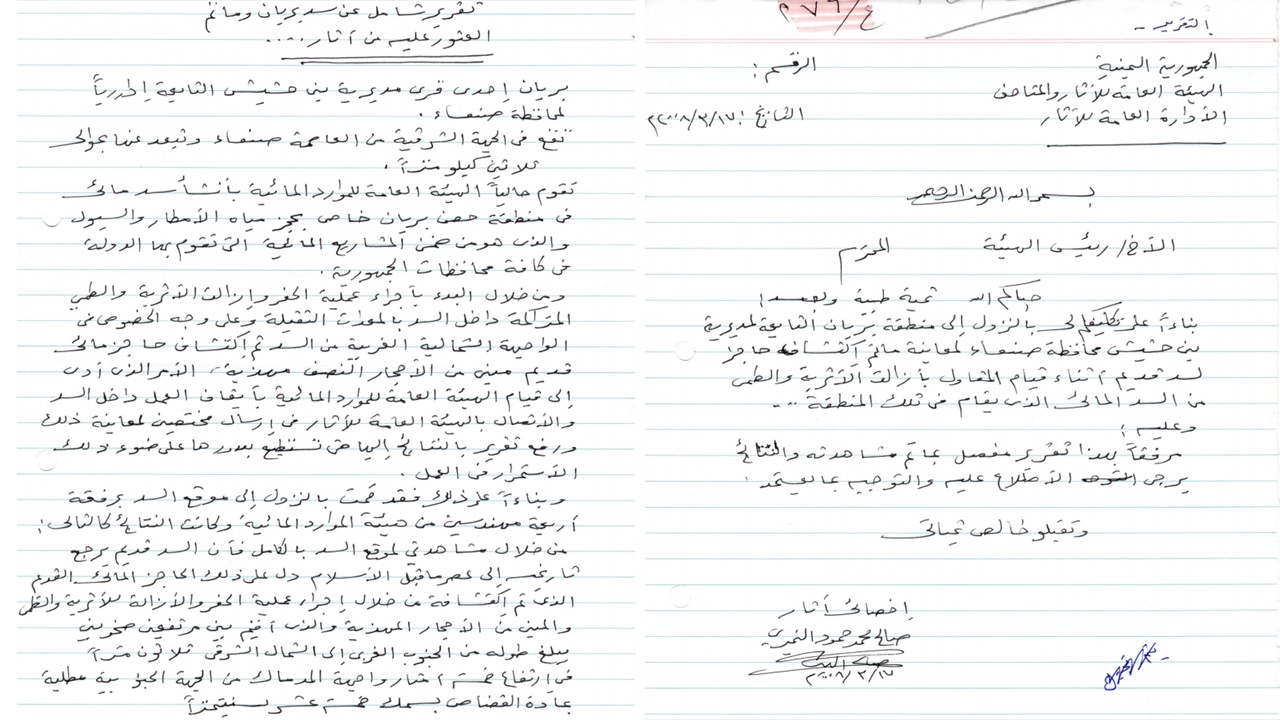 التقرير -
ع/٢٧٦
الجمهورية اليمنية
الرقم :
الهيئة العامة للأثار والمتاحف
الأدارة العامة للأثار
التاريخ ٢٠٠٨/٣/١٧م
بسم الله الرحمن الرحيم
الأخ/ رئيس الهيئة المحترم
حياكم الله تحية طيبة وبعد ؛
بناءاً على تكليفكم لي بالنزول إلى منطقة بريان التابعة لمديرية
بني حشيش محافظة صنعاء لمعاينة ماتم إكتشافه حاجز
لسد قديم أثناء قيام المقاول بأزالة الأتربة والطمي
من السد المائي الذي يقام في تلك المنطقة ..
وعليه ؛
مرفقاً بهذا تقرير مفصل بماتم مشاهدته والنتائج
يرجى الأطلاع عليه والتوجيه بما يعتمد .
وتقبلو خالص تحياتي
إخصائي أثار
صالح محمد حمود
٢٠٠٨/٣/١٧
تقرير شامل عن سد بريان وماتم
العثور عليه من أثار ....
بريان إحدى قرى مديرية بني حشيش التابعة إدارياً
لمحافظة صنعاء .
تقع في الجهة الشرقية من العاصمة صنعاء وتبعد عنها بحوالي
ثلاثين كيلو متراً .
تقوم حالياً الهيئة العامة للموارد المائية بأنشأ سد مائي
في منطقة حصن بريان خاص بحجز مياه الأمطار والسيول
والذي هو من ضمن المشاريع المائية التي تقوم بها الدولة
في كافة محافظات الجمهورية .
ومن خلال البدء بأجراء عملية الحفر وإزالة الأتربة والطمي
المتراكمة داخل السد بالمعدات الثقيلة وعلى وجه الخصوص في
الواجهة الشمالية الغربية من السد تم إكتشاف حاجز مائي
قديم مبني من الأحجار النصف مهذبة، الأمر الذي أدى
إلى قيام الهيئة العامة للموارد المائية بأيقاف العمل داخل السد
والأتصال بالهيئة العامة للأثار في إرسال مختصين لمعاينة ذلك
ورفع تقرير بالنتائج إليها حتى تستطيع بدورها على ضوء ذلك
الأستمرار في العمل .
وبناءاً على ذلك فقد قمت بالنزول إلى موقع السد برفقة
أربعة مهندسين من هيئة الموارد المائية وكانت النتائج كالتالي :
من خلال مشاهدتي لموقع السد بالكامل فأن السد قديم يرجع
تاريخه إلى عصر ماقبل الأسلام دل على ذلك الحاجز المائي القديم
الذي تم إكتشافة من خلال إجراء عملية الحفر والأزالة للأتربة والطمي
والمبني من الأحجار المهذبة والذي أقيم بين مرتفعين صخريين
يبلغ طوله من الجنوب الغربي إلى الشمال الشرقي ثلاثون متراً
في إرتفاع خمسة أمتار وواجهة المدماك من الجهة الجنوبية مطلية
بمادة القضاض بسمك خمسة عشر سنتيمتراً